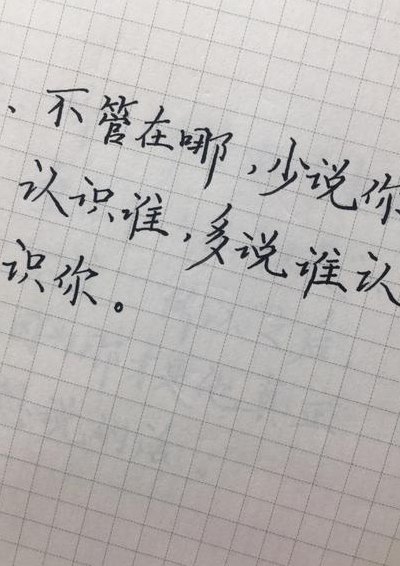 、不管在哪,少说你
认识谁,多说谁认
识你。